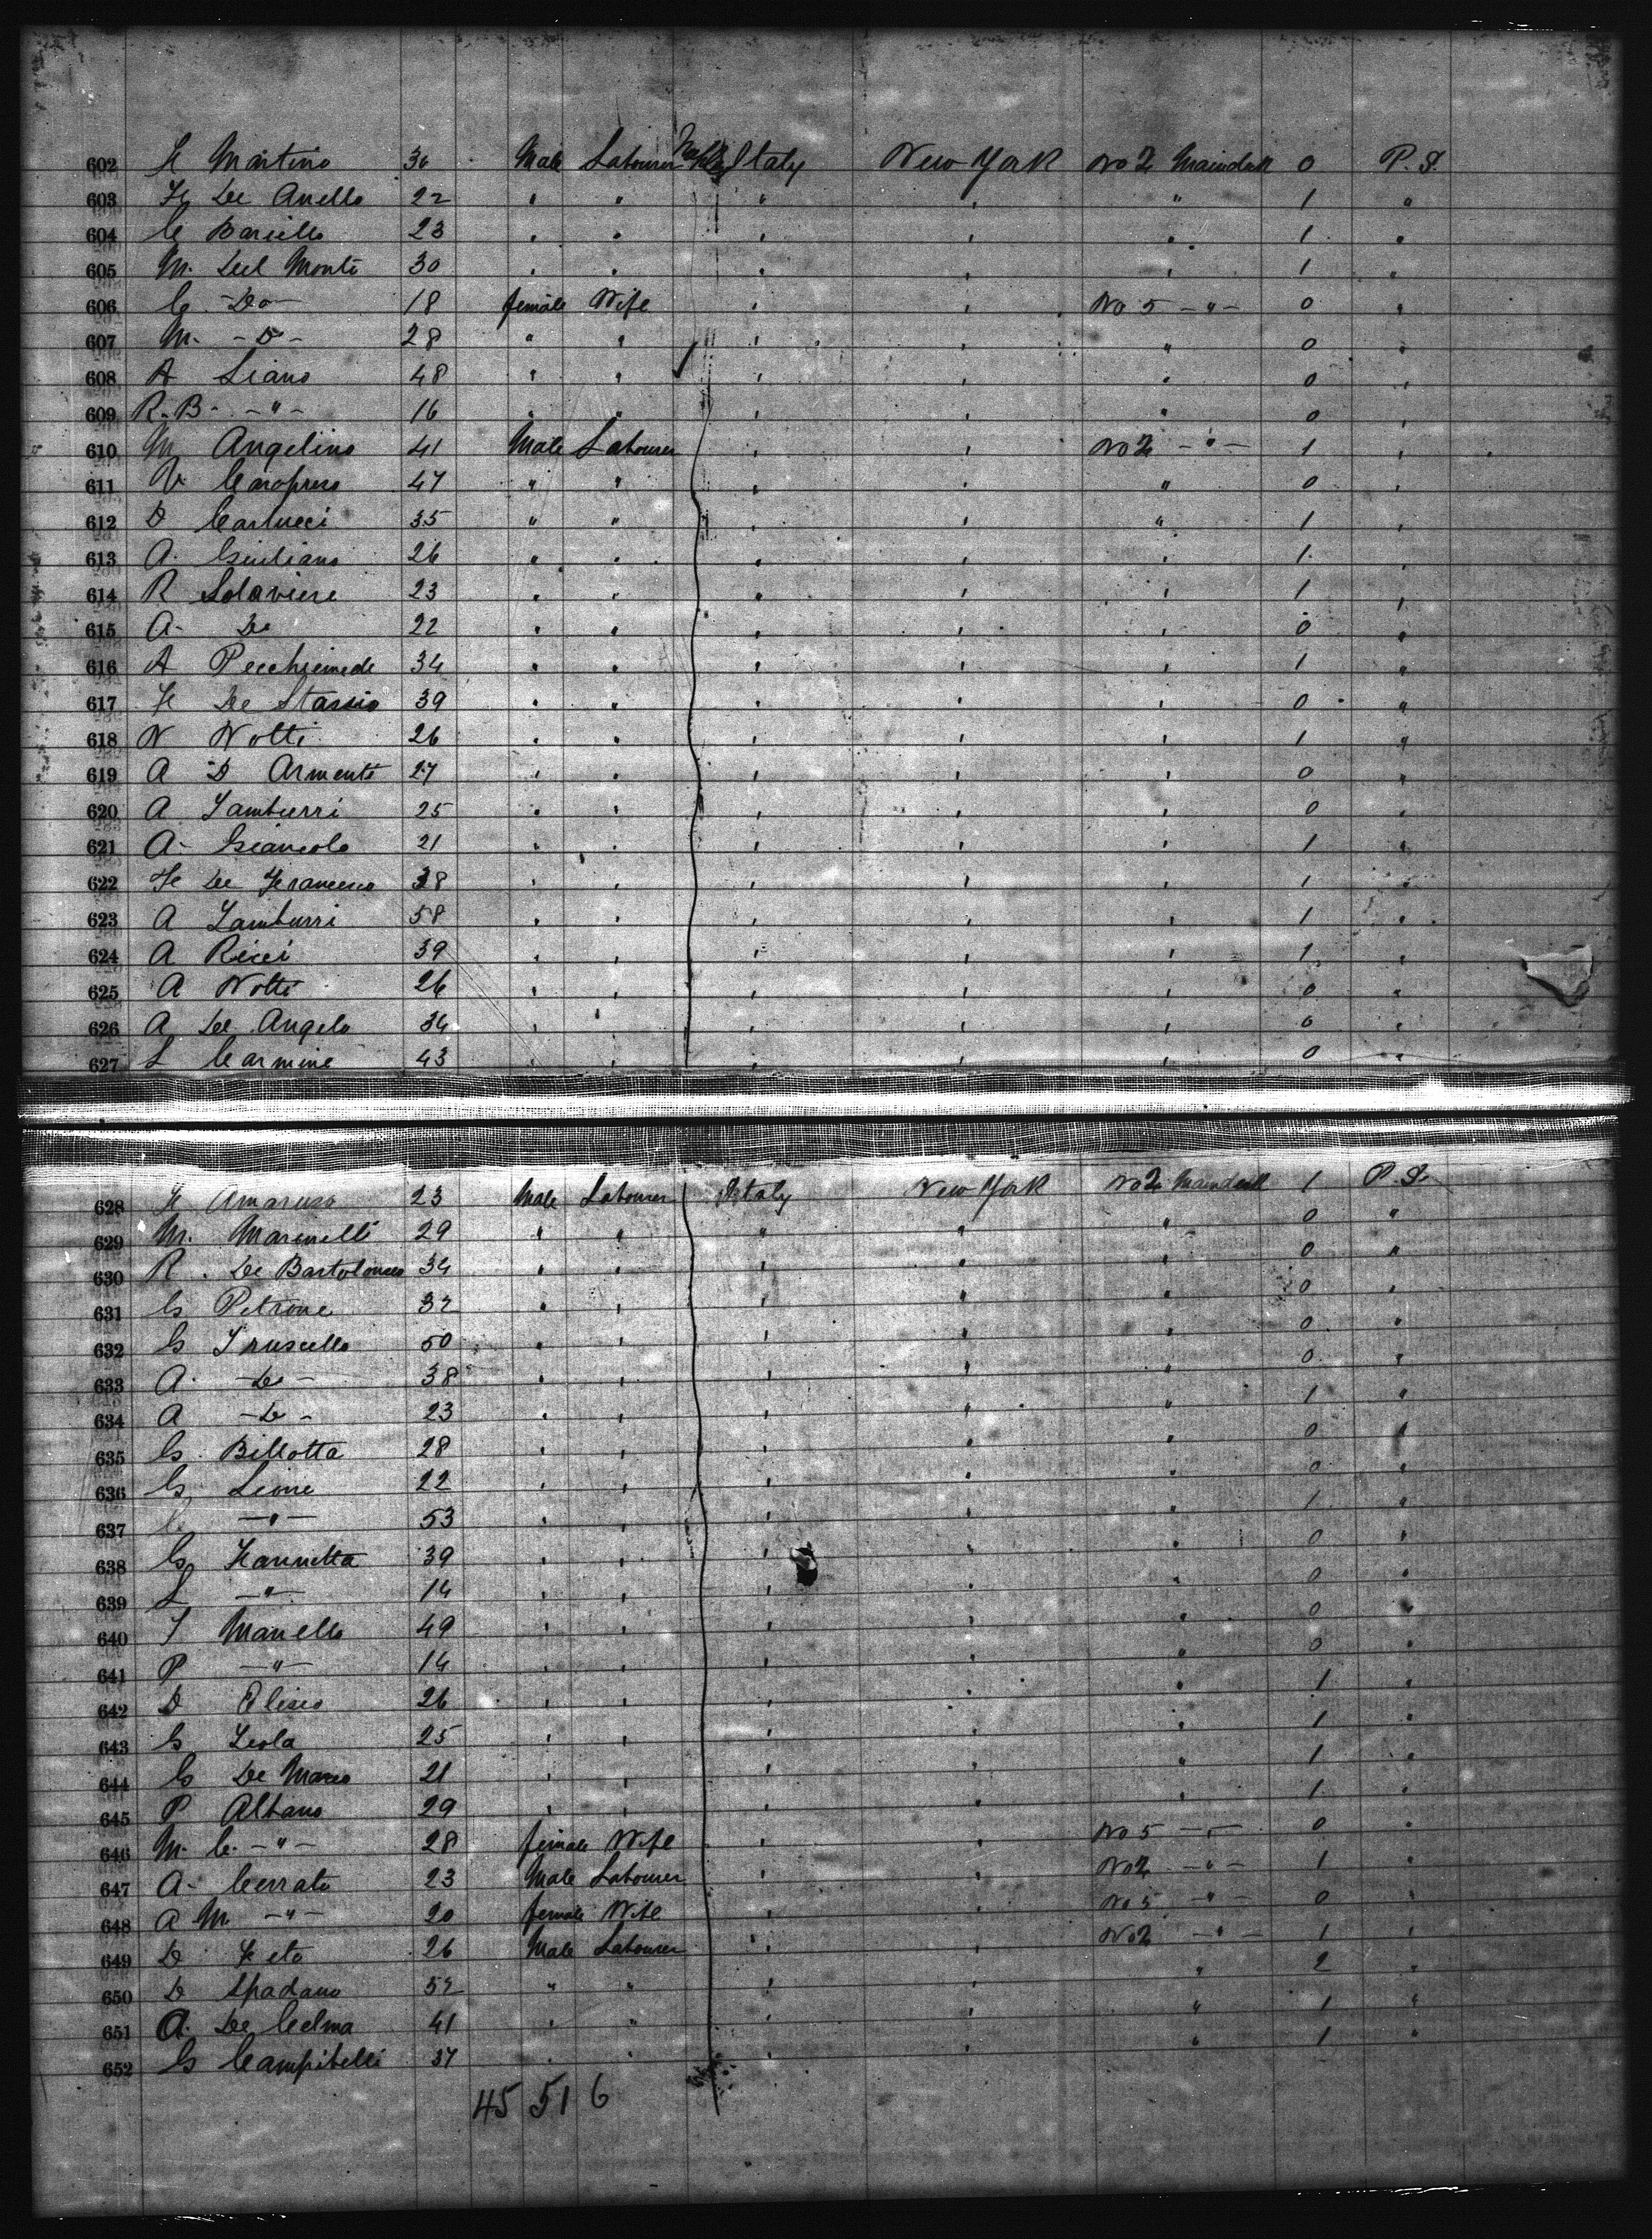 602 F Martino 30 Male Labourer Naples Italy New York No 2 Maindeck 0 P.S.
603 F De Anello 22 " " " " " 1 "
604 C Bariello 23 " " " " " 1 "
605 M. Del Monte 30 " " " " " 1 "
606 C. Do 18 female Wife " " No 5 - " - 0 "
607 M. - D - 28 " " " " " 0 "
608 A Liano 48 " " " " " 0 "
609 R. B. - " - 16 " " " " " 0 "
610 M Angelino 41 Male Labourer " " No 2 - " - 1 "
611 V Caropreso 47 " " " " " 0 "
612 D Carlucci 35 " " " " " 1 "
613 A. Giuliano 26 " " " " " 1 "
614 R Solaviere 23 " " " " " 1 "
615 A- Do 22 " " " " " 0 "
616 A 34 " " " " " 1 "
617 F De Stassio 39 " " " " " 0 "
618 N Notti 26 " " " " " 1 "
619 A D Armente 27 " " " " " 0 "
620 A Tamburri 25 " " " " " 0 "
621 A- Giancola 21 " " " " " 1 "
622 F De Francesco 38 " " " " " 1 "
623 A Tamburri 58 " " " " " 1 "
624 A Ricci 39 " " " " " 1 "
625 A Notti 26 " " " " " 0 "
626 A De Angelo 34 " " " " " 0 "
627 L Carmine 43 " " " " " 0 "
628 F Amaruso 23 Male Labourer Italy New York No 2 Maindeck 1 P.S.
629 M. Marinelli 29 " " " " " 0 "
630 R. De Bartolomeo 34 " " " " " 0 "
631 G Petrone 32 " " " " " 0 "
632 G Truscello 50 " " " " " 0 "
633 A. - Do - 38 " " " " " 0 "
634 A - Do - 23 " " " " " 1 "
635 G. Billotta 28 " " " " " 0 "
636 G Leone 22 " " " " " 0 "
637 - " - 53 " " " " " 1 "
638 G Iannetta 39 " " " " " 0 "
639 L - " - 14 " " " " " 0 "
640 T Manello 49 " " " " " 0 "
641 P - " - 14 " " " " " 0 "
642 D Eliseo 26 " " " " " 1 "
643 G Leola 25 " " " " " 1 "
644 G De Marco 21 " " " " " 1 "
645 P Albano 29 " " " " " 1 "
646 M. C. - " - 28 female Wife " " No 5 - " - 0 "
647 A- Cerrato 23 Male Labourer " " No 2 - " - 1 "
648 A M - " - 20 female Wife " " No 5 - " - 0 "
649 D Feto 26 Male Labourer " " No 2 - " - 1 "
650 D Spadano 52 " " " " " 2 "
651 A. De Celma 41 " " " " " 1 "
652 G Campitelli 37 " " " " " 1 "
45 51 6